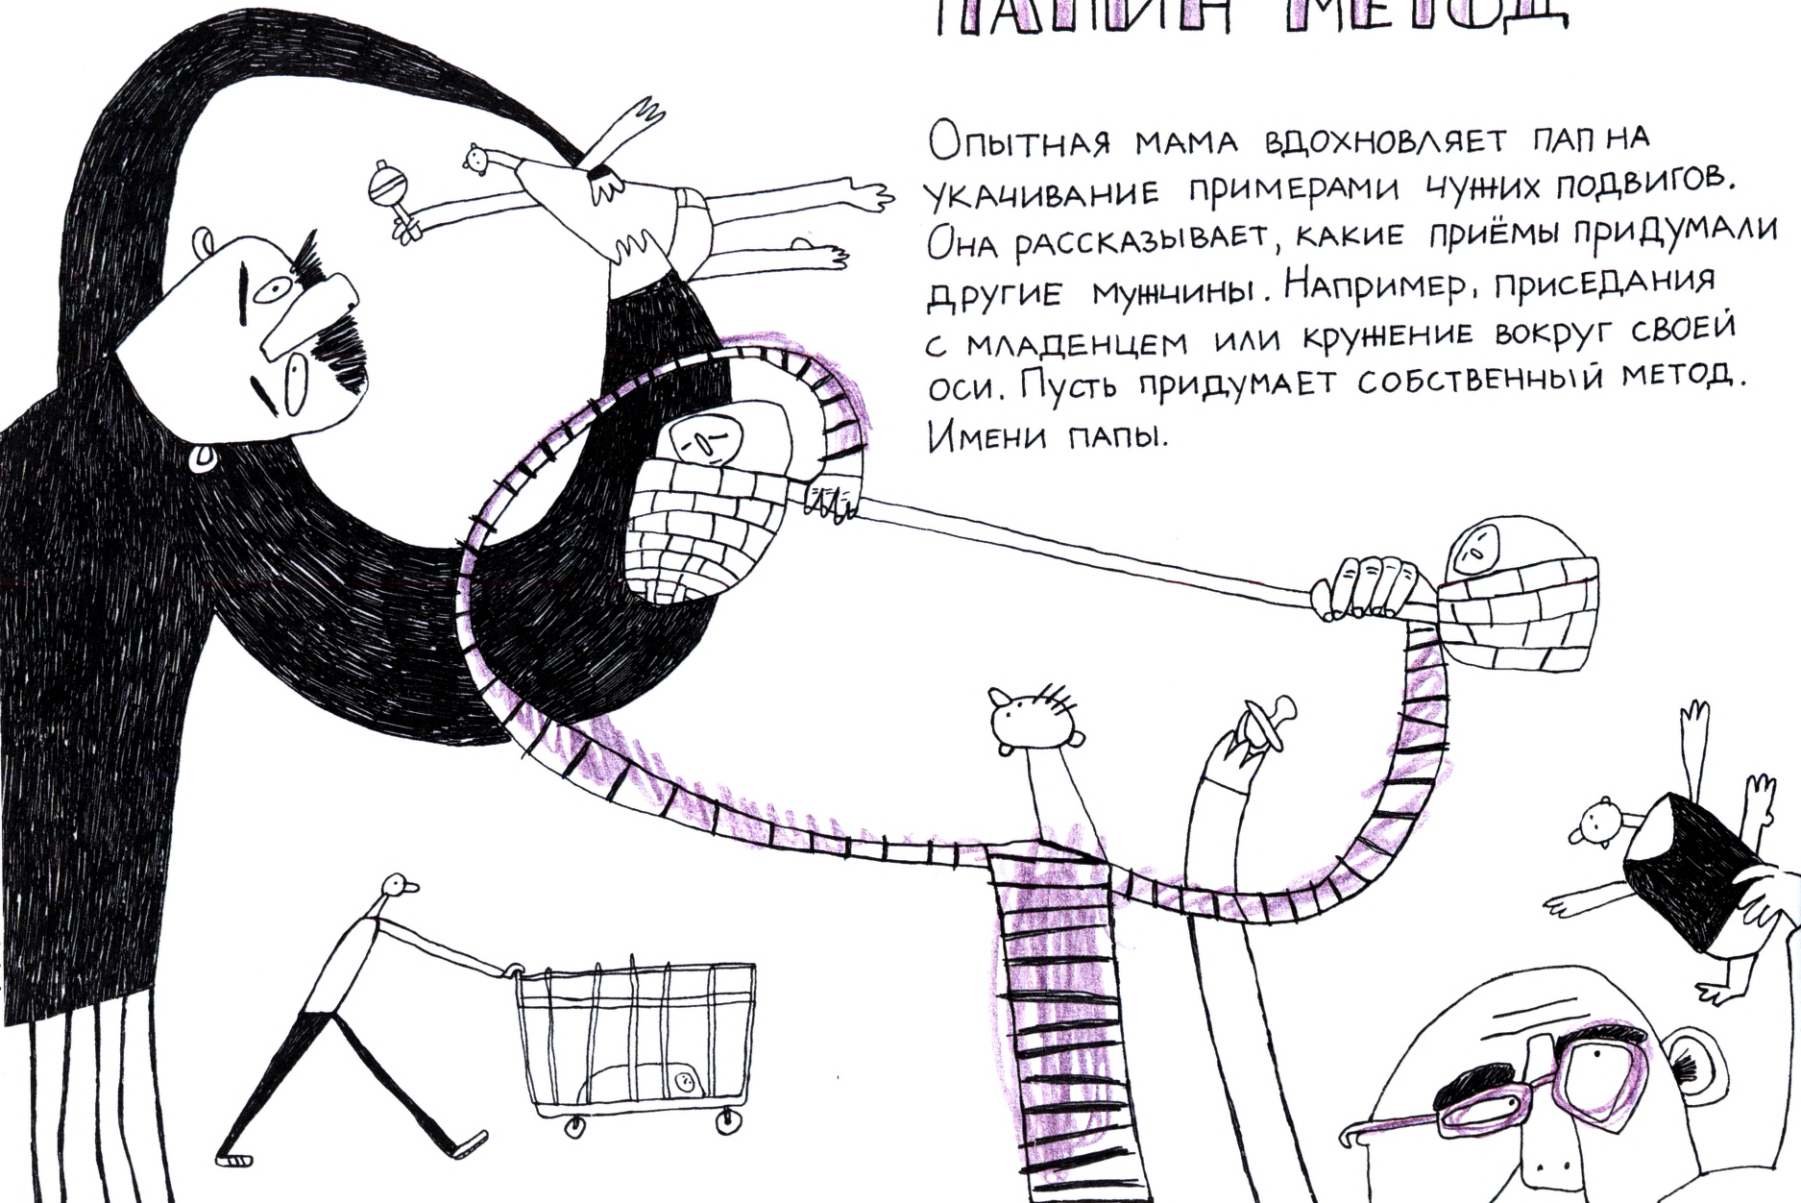 ПАПИН МЕТОД
Опытная мама вдохновляет пап на
укачивание примерами чужих подвигов.
Она рассказывает, какие приёмы придумали
другие мужчины. Например, приседания
с младенцем или кружение вокруг своей
оси. Пусть придумает собственный метод.
Имени папы.